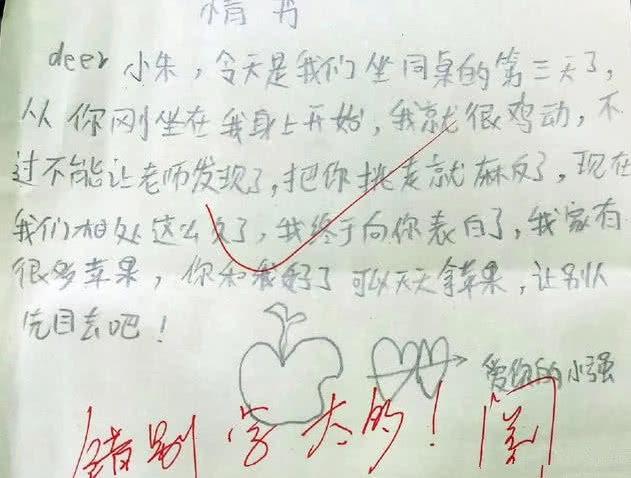 情书
deer 小朱,令天是我们坐同桌的第三天了,
从你刚坐在我身上开始,我就很鸡动,不
过不能让老师发现了,把你挑走就麻反了,现在
我们相处这么久了,我终于向你表白了,我家有
很多苹果,你和我好了可以天天拿苹果,让别人
先目去吧!
爱你的小强
错别字太多!阅